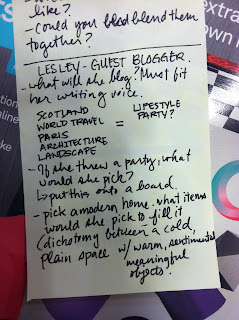 like?
- Could you blend them
together?
LESLEY - GUEST BLOGGER.
- what will she blog? Must fit
her writing voice.
SCOTLAND
WORLD TRAVEL
PARIS
ARCHITECTURE
LANDSCAPE
= LIFESTYLE
PARTY?
- If she threw a party, what
would she pick?
↳ put this onto a board.
- pick a modern home. what items
would she pick to fill it
(dichotomy between a cold,
plain space w/ warm, sentimental
meaningful
objects.
extra
own i
nline
les